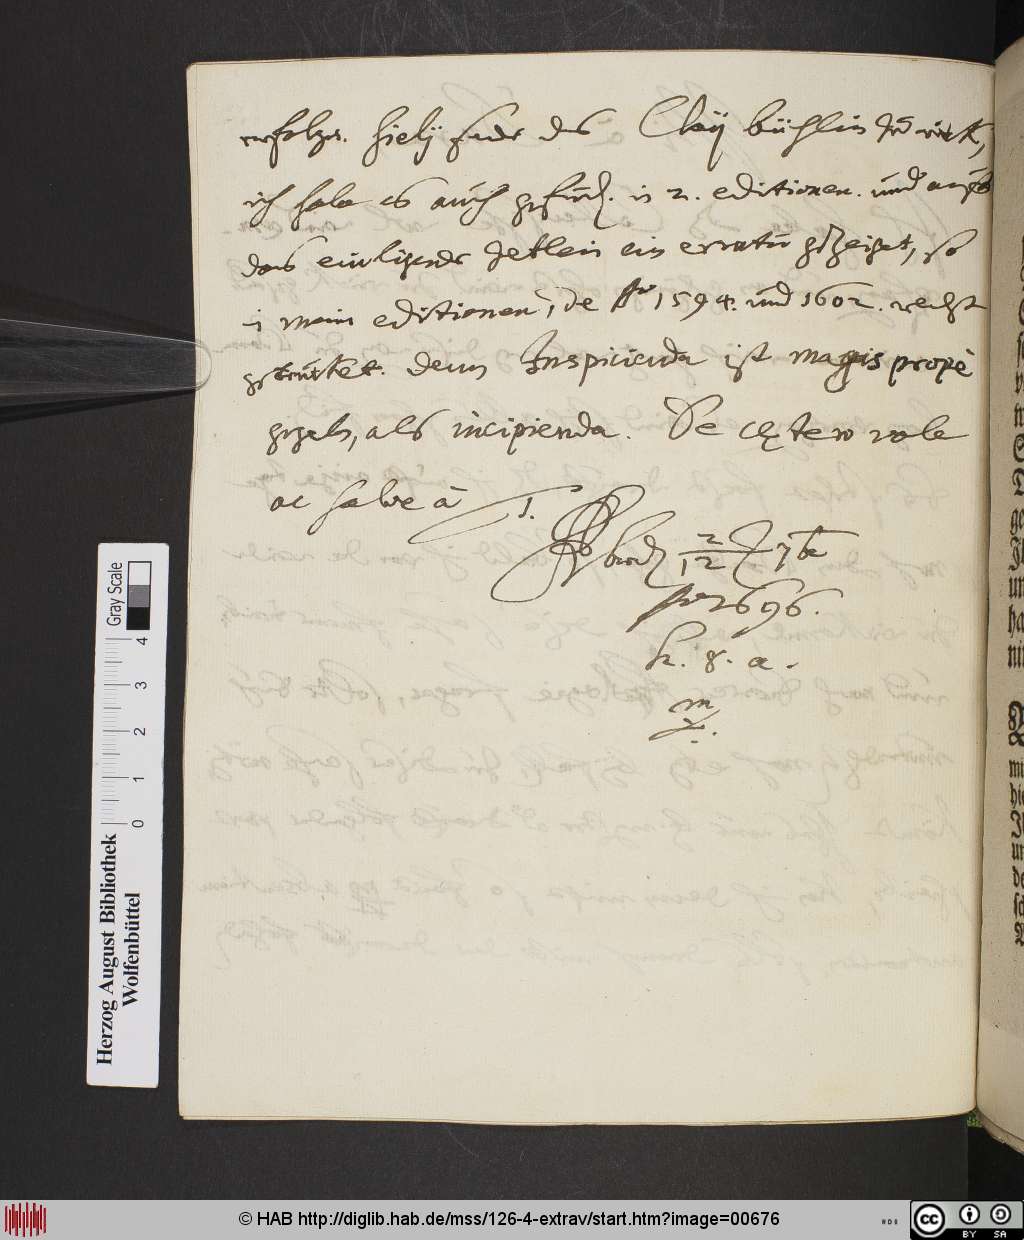 erfolge. hiebÿ sende das Claÿ büchlin zurück,
ich habe es auch gefund. in 2. editionen. und auch
das einligende Zetlein ein erratū gezeiget, so
in mein editionen, de Ao 1594. und 1602. recht
getrucket. denn Inspicienda ist magis propè
gegeb, als incipienda. De cętero vale
ac salve à T.
2/12 7br
Ao 1696.
h. 8. a.
m
Herzog August Bibliothek
Wolfenbüttel
Gray Scale
0 1 2 3 4
© HAB http://diglib.hab.de/mss/126-4-extrav/start.htm?image=00676
cc BY SA